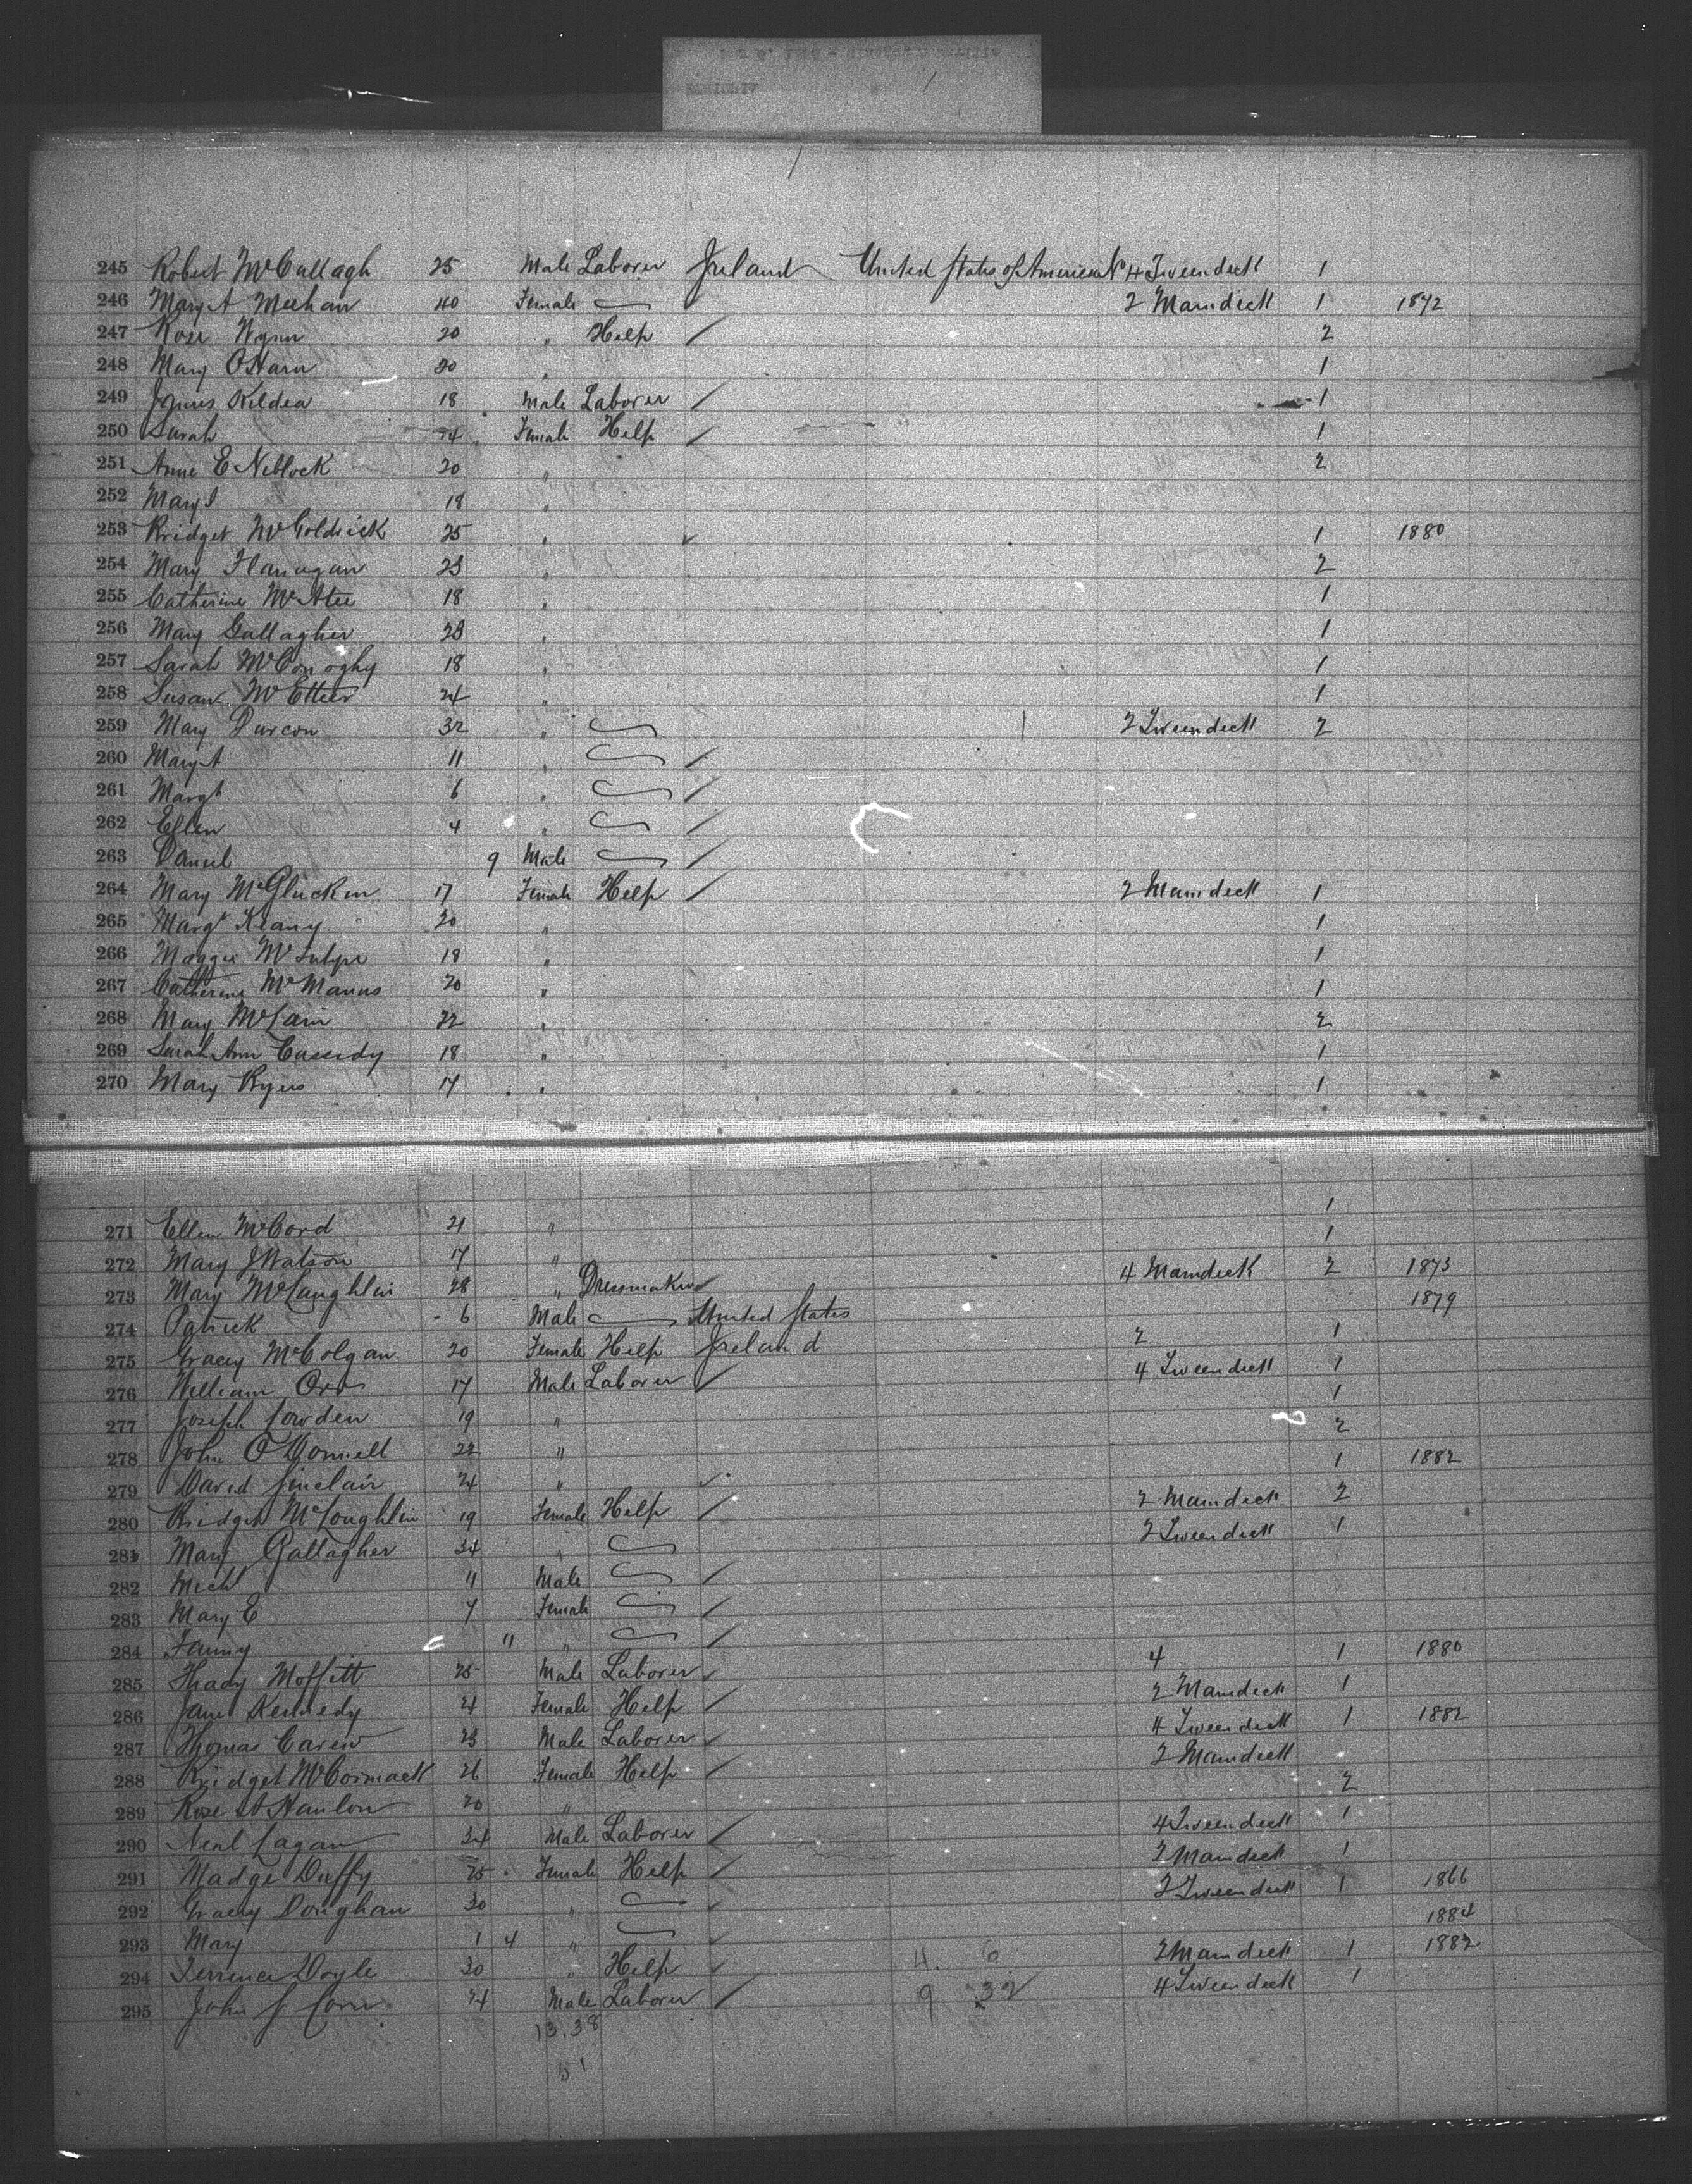 245 Robert McCullagh 25 Male Laborer Ireland United States of America No 4 Tweendeck 1
246 Mary A Meehan 40 Female 2 Maindeck 1 1872
247 Rose Wynn 20 " Help 2
248 Mary O'Hara 20 " 1
249 James Kildea 18 Male Laborer 1
250 Sarah Female Help 1
251 Anne E Neblock 20 " 2
252 Mary J 18 "
253 Bridget McGoldrick 25 " 1 1880
254 Mary Flanagan 23 " 2
255 Catherine McAtee 18 " 1
256 Mary Gallagher 23 " 1
257 Sarah McConoghy 18 " 1
258 Susan McEtteer 24 " 1
259 Mary Durcon 32 " 2 Tweendeck 2
260 Mary A 11 "
261 Margt 6 "
262 Ellen 4 "
263 Daniel 9 Male
264 Mary McGlucken 17 Female Help 2 Maindeck 1
265 Margt Keany 20 " 1
266 Maggie McIntyre 18 " 1
267 Catherine McManus 20 " 1
268 Mary McLain 22 " 2
269 Sarah Ann Cassidy 18 " 1
270 Mary Byers 17 " 1
271 Ellen McCord 21 " 1
272 Mary J Watson 17 " 1
273 Mary McLaughlin 28 " Dressmaker 4 Maindeck 2 1873
274 Patrick 6 Male United States 1879
275 Gracey McColgan 20 Female Help Ireland 2 1
276 William Orr 17 Male Laborer 4 Tweendeck 1
277 Joseph Lowden 19 " 1
278 John O'Connell 22 " 2
279 David Sinclair 24 " 1 1882
280 Bridget McLoughlin 19 Female Help 2 Maindeck 2
281 Mary Gallagher 34 " 2 Tweendeck 1
282 Michl 11 Male
283 Mary E 7 Female
284 Fanny 11 "
285 Thady Moffitt 25 Male Laborer 4 1 1880
286 Jane Kennedy 21 Female Help 2 Maindeck 1
287 Thomas Carew 23 Male Laborer 4 Tweendeck 1 1882
288 Bridget McCormack 26 Female Help 2 Maindeck
289 Rose A Hanlon 20 " 2
290 Neal Lagan 34 Male Laborer 4 Tweendeck 1
291 Madge Duffy 25 Female Help 2 Maindeck 1
292 Gracey Doughan 30 " 2 Tweendeck 1 1866
293 Mary 1 4 " 1884
294 Terrence Doyle 30 " Help 4. 6 2 Maindeck 1 1882
295 John 24 Male Laborer 9 32 4 Tweendeck 1
13.38
51